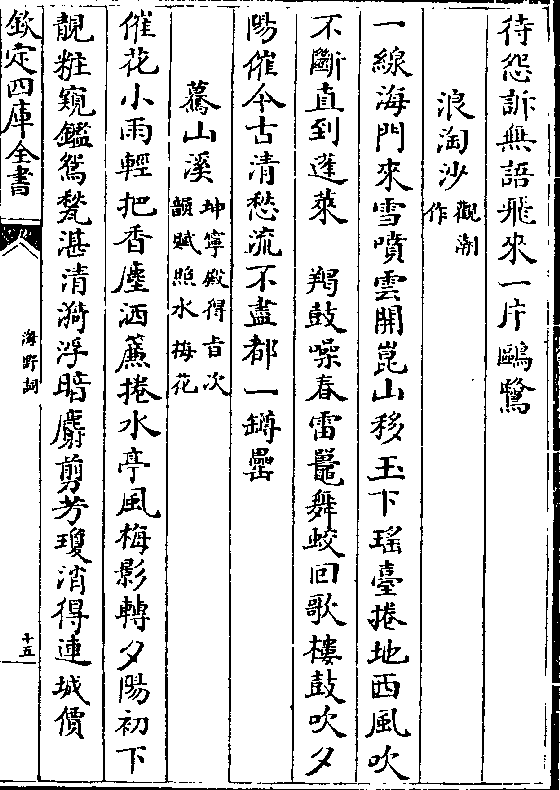 待怨訴無語飛來一片鷗鷺
浪淘沙觀潮作
一線海門來雪噴雲開崑山移玉下瑤臺捲地西風吹
不斷直到蓬萊　羯鼓噪春雷鼉舞蛟回歌樓鼓吹夕
陽催今古清愁流不盡都一罇罍
驀山溪坤寧殿得旨次韻賦照水梅花
催花小雨輕把香塵洒簾捲水亭風梅影轉夕陽初下
靚粧窺鑑鴛甃湛清漪浮暗麝剪芳瓊消得連城價
欽定四庫全書
海野詞
十五